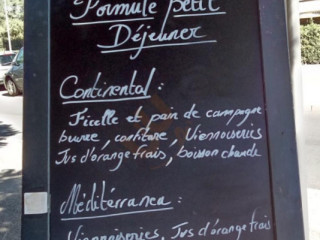 Formule petit
Déjeuner
Continental :
Ficelle et pain de campagne
beurre, confiture, Viennoiseries
Jus d'orange frais, boisson chaude
Méditérranea :
Viennoiseries, Jus d'orange frais